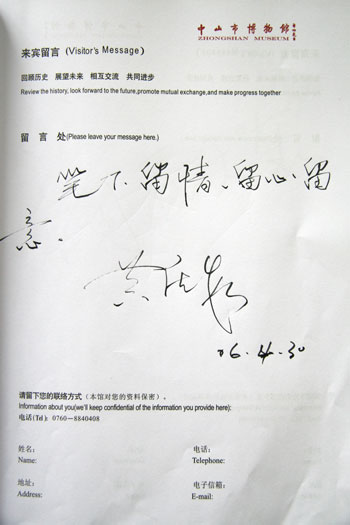 中山市博物館
ZHONGSHAN MUSEUM
来宾留言(Visitor's Message)
回顾历史 展望未来 相互交流 共同进步
Review the history, look forward to the future,promote mutual exchange,and make progress together
留 言 处(Please leave your message here.)
笔下留情、留心、留
意.
06.4.30
请留下您的联络方式(本馆对您的资料保密).
Information about you(we'll keep confidential of the information you provide here):
电话(Tel): 0760-8840408
姓名: 电话:
Name: Telephone:
地址: 电子信箱:
Address: E-mail: